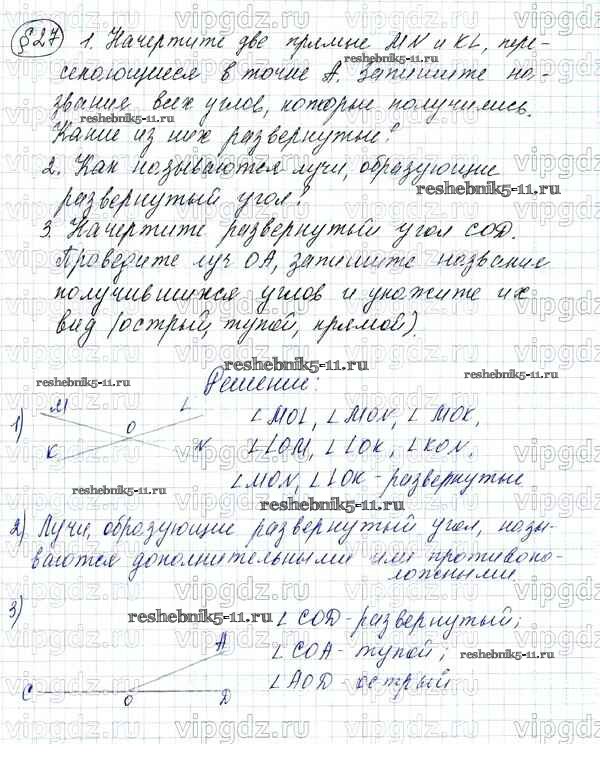 §27 1. Начертите две прямые MN и KL, пере-
секающиеся в точке А. запишите на-
звания всех углов, которые получились.
Какие из них развернутые?
2. Как называются лучи, образующие
развернутый угол?
3. Начертите развернутый угол COD.
Проведите луч OA, запишите название
получившихся углов и укажите их
вид (острый, тупой, прямой).
Решение:
1) M L
O
K N
∠ MOL, ∠ MON, ∠ MOK,
∠ LOM, ∠ LOK, ∠ KON,
∠ MON, ∠ LOK - развернутые
2) Лучи, образующие развернутый угол, назы-
ваются дополнительными или противопо-
ложными.
3)
A
C O D
∠ COD - развернутый;
∠ COA - тупой;
∠ AOD - острый
vipgdz.ru
reshebnik5-11.ru